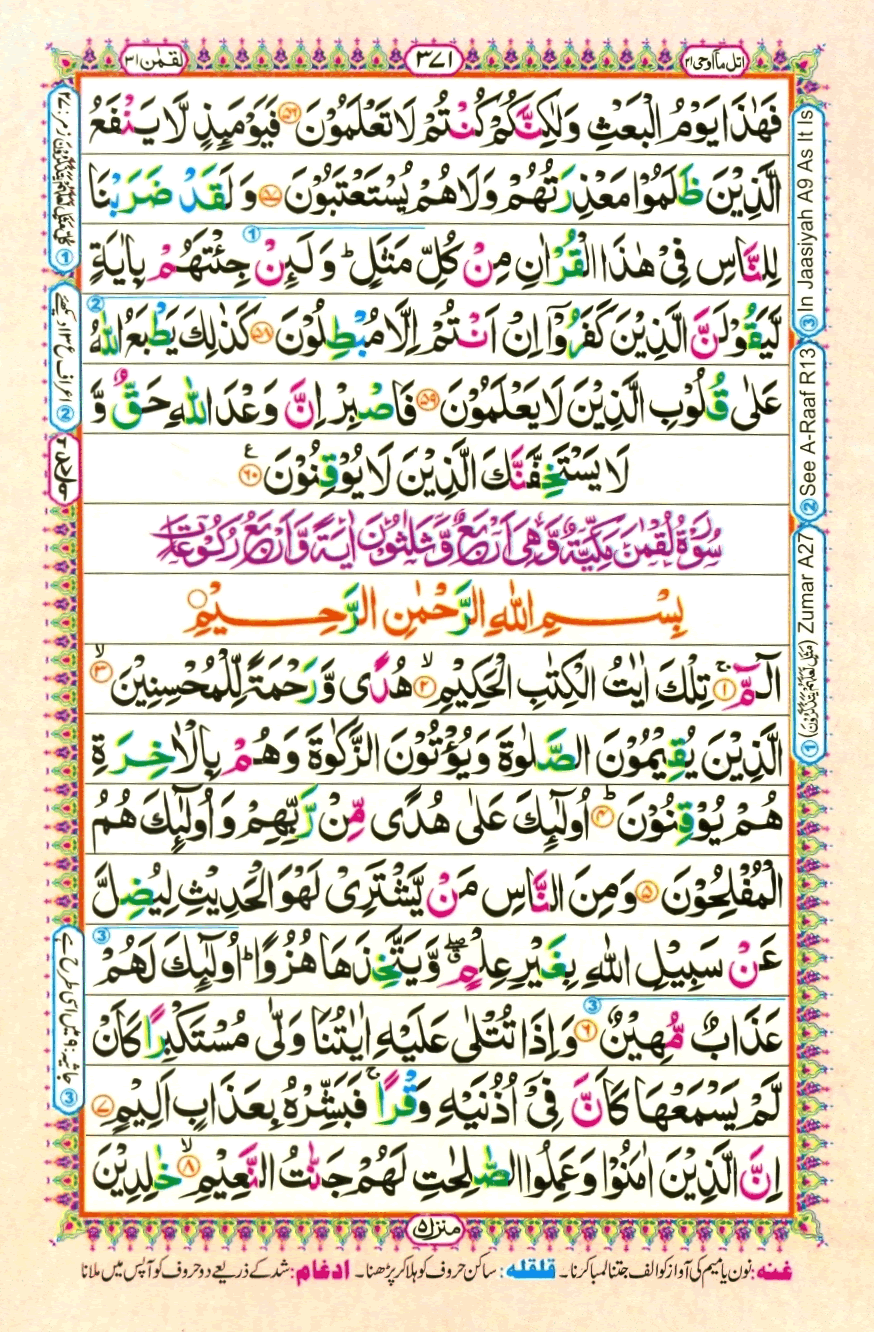 اتل ما اوحی ۲۱
۳۷۱
لقمٰن ۳۱
فَهٰذَا يَوْمُ الْبَعْثِ وَلٰكِنَّكُمْ كُنْتُمْ لَا تَعْلَمُوْنَ ۵۶ فَيَوْمَئِذٍ لَّا يَنْفَعُ
الَّذِيْنَ ظَلَمُوْا مَعْذِرَتُهُمْ وَلَا هُمْ يُسْتَعْتَبُوْنَ ۵۷ وَلَقَدْ ضَرَبْنَا
لِلنَّاسِ فِيْ هٰذَا الْقُرْاٰنِ مِنْ كُلِّ مَثَلٍ ؕ وَلَئِنْ جِئْتَهُمْ بِاٰيَةٍ
لَّيَقُوْلَنَّ الَّذِيْنَ كَفَرُوْۤا اِنْ اَنْتُمْ اِلَّا مُبْطِلُوْنَ ۵۸ كَذٰلِكَ يَطْبَعُ اللّٰهُ
عَلٰى قُلُوْبِ الَّذِيْنَ لَا يَعْلَمُوْنَ ۵۹ فَاصْبِرْ اِنَّ وَعْدَ اللّٰهِ حَقٌّ وَّ
لَا يَسْتَخِفَّنَّكَ الَّذِيْنَ لَا يُوْقِنُوْنَ ۶۰
سُوْرَةُ لُقْمٰنَ مَكِّيَّةٌ وَّهِيَ اَرْبَعٌ وَّثَلٰثُوْنَ اٰيَةً وَّاَرْبَعُ رُكُوْعَاتٍ
بِسْمِ اللّٰهِ الرَّحْمٰنِ الرَّحِيْمِ
الٓمّٓ ۚ ۱ تِلْكَ اٰيٰتُ الْكِتٰبِ الْحَكِيْمِ ۙ ۲ هُدًى وَّرَحْمَةً لِّلْمُحْسِنِيْنَ ۙ ۳
الَّذِيْنَ يُقِيْمُوْنَ الصَّلٰوةَ وَيُؤْتُوْنَ الزَّكٰوةَ وَهُمْ بِالْاٰخِرَةِ
هُمْ يُوْقِنُوْنَ ؕ ۴ اُولٰٓئِكَ عَلٰى هُدًى مِّنْ رَّبِّهِمْ وَاُولٰٓئِكَ هُمُ
الْمُفْلِحُوْنَ ۵ وَمِنَ النَّاسِ مَنْ يَّشْتَرِيْ لَهْوَ الْحَدِيْثِ لِيُضِلَّ
عَنْ سَبِيْلِ اللّٰهِ بِغَيْرِ عِلْمٍ ۖ وَّيَتَّخِذَهَا هُزُوًا ؕ اُولٰٓئِكَ لَهُمْ
عَذَابٌ مُّهِيْنٌ ۶ وَاِذَا تُتْلٰى عَلَيْهِ اٰيٰتُنَا وَلّٰى مُسْتَكْبِرًا كَاَنْ
لَّمْ يَسْمَعْهَا كَاَنَّ فِيْۤ اُذُنَيْهِ وَقْرًا ۚ فَبَشِّرْهُ بِعَذَابٍ اَلِيْمٍ ۷
اِنَّ الَّذِيْنَ اٰمَنُوْا وَعَمِلُوا الصّٰلِحٰتِ لَهُمْ جَنّٰتُ النَّعِيْمِ ۙ ۸ خٰلِدِيْنَ
منزل ۵
غنه: نون یا میم کی آواز کو الف جتنا لمبا کرنا۔ قلقله: ساکن حروف کو ہلا کر پڑھنا۔ ادغام: شد کے ذریعے دو حروف کو آپس میں ملانا
③ In Jaasiyah A9 As It Is
② See A-Raaf R13
① (مَثَلٍ لَّعَلَّهُمْ يَتَذَكَّرُوْنَ) Zumar A27